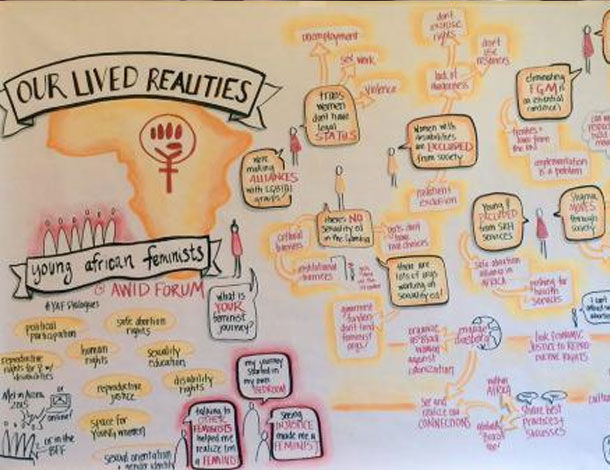 OUR LIVED REALITIES
young african feminists
@ AWID FORUM
#YAF Dialogues
political
participation
safe abortion
rights
reproductive
rights for
disabilities
human
rights
sexuality
education
reproductive
justice
disability
rights
Met in Accra
2015
or
online!
or in the
BFF
space for
young women
sexual orientation
& gender identity
What is
YOUR
feminist
journey?
my journey
started in
my own
BEDROOM
talking to
OTHER
FEMINISTS
helped me
realize I'm
a FEMINIST
seeing
INJUSTICE
made me a
FEMINIST
We're
making
ALLIANCES
with LGBTQI
groups!
unemployment
sex work
violence
trans
women
don't have
legal
STATUS
don't
exercise
rights
don't
use
resources
lack of
awareness
Women with
disabilities
are EXCLUDED
from society
eliminating
FGM is
an essential
implementation
is a problem
there's NO
sexuality ed
in the
cultural
barriers
institutional
barriers
there are
lots of orgs
working on
sexuality ed!
young
EXCLUDED
from SRH
services
stigma
MOVES
through
society
safe abortion
AFRICA
pushing for
health
services
government
funders
don't fund
feminist
orgs!
organize
as Black
women
against
colonization
engage
diaspora
link ECONOMIC
JUSTICE TO
RIGHTS
see and
realize our
CONNECTIONS
within
AFRICA
share best
practices +
successes
I can't